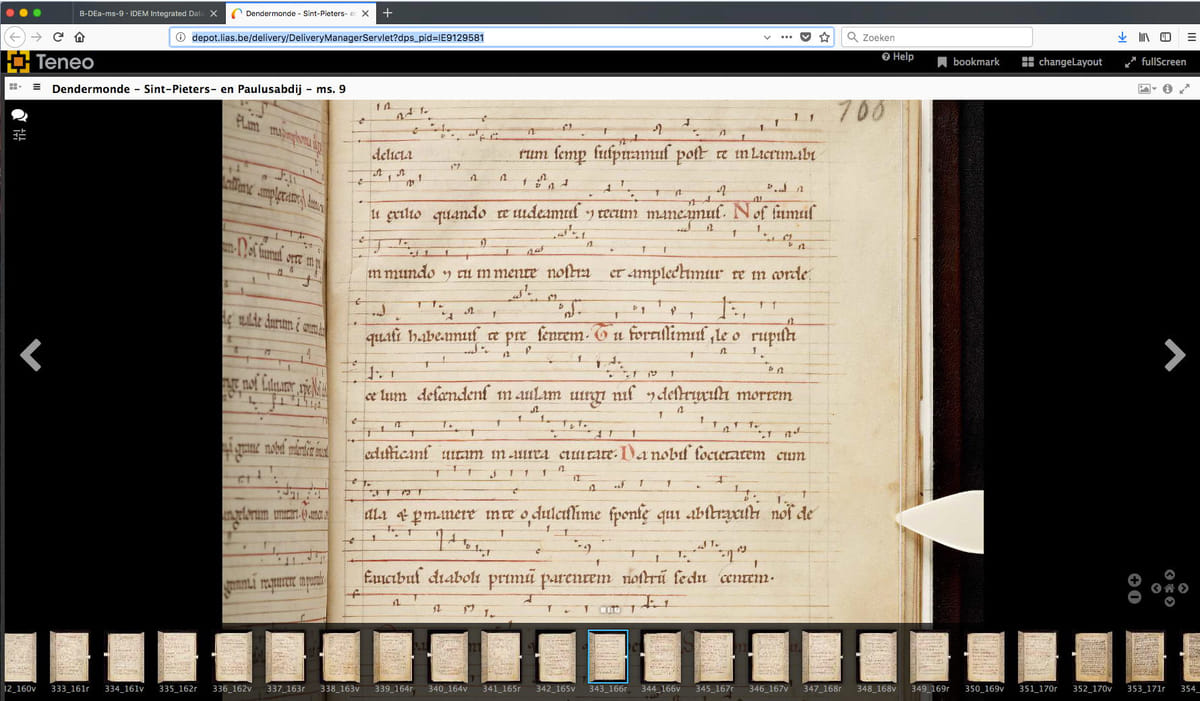 B-DEa-ms-9 - IDEM Integrated Dat
Dendermonde - Sint-Pieters- e
depot.lias.be/delivery/DeliveryManagerServlet?dps_pid=IE9129581
Zoeken
Teneo
Help
bookmark
changeLayout
fullScreen
Dendermonde - Sint-Pieters- en Paulusabdij - ms. 9
delicia rum semp suspiramus post te in lacrimabi
li exilio quando te uideamus ⁊ tecum maneamus. Nos sumus
in mundo ⁊ tu in mente nostra et amplectimur te in corde
quasi habeamus te pre sentem. Tu fortissimus leo rupisti
ce lum descendens in aulam uirgi nis ⁊ destruxisti mortem
edificans uitam in aurea ciuitate. Da nobis societatem cum
illa & ꝑmanere in te o dulcissime sponse qui abstraxisti nos de
faucibus diaboli primū parentem nostrū sedu centem.
2_160v
333_161r
334_161v
335_162r
336_162v
337_163r
338_163v
339_164r
340_164v
341_165r
342_165v
343_166r
344_166v
345_167r
346_167v
347_168r
348_168v
349_169r
350_169v
351_170r
352_170v
353_171r
354_